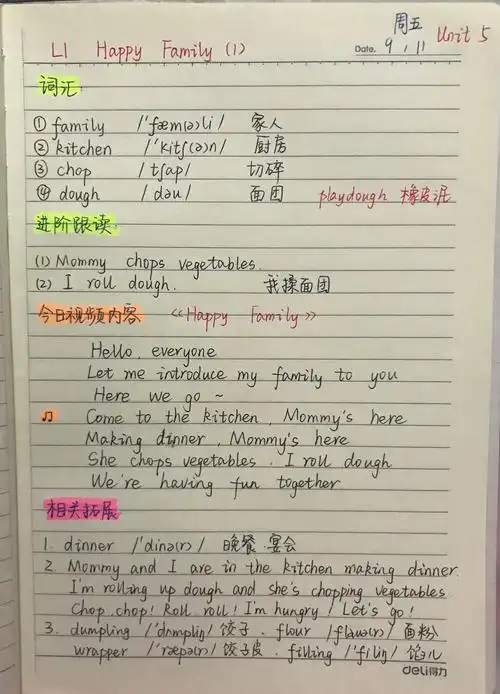 周五
Unit 5
L1 Happy Family (1)
Date. 9 . 11
词汇
① family /ˈfæm(ə)li/ 家人
② kitchen /ˈkitʃ(ə)n/ 厨房
③ chop /tʃap/ 切碎
④ dough /dəu/ 面团 playdough 橡皮泥
进阶跟读
(1) Mommy chops vegetables.
(2) I roll dough. 我揉面团
今日视频内容 《Happy Family》
Hello, everyone
Let me introduce my family to you
Here we go ~
♫ Come to the kitchen, Mommy's here
Making dinner, Mommy's here
She chops vegetables. I roll dough
We're having fun together
相关拓展
1. dinner /ˈdinə(r)/ 晚餐.宴会
2. Mommy and I are in the kitchen making dinner.
I'm rolling up dough and she's chopping vegetables
Chop, chop! Roll, roll! I'm hungry! Let's go!
3. dumpling /ˈdʌmpliŋ/ 饺子. flour /flauə(r)/ 面粉
wrapper /ˈræpə(r)/ 饺子皮. filling /ˈfiliŋ/ 馅儿
deli得力